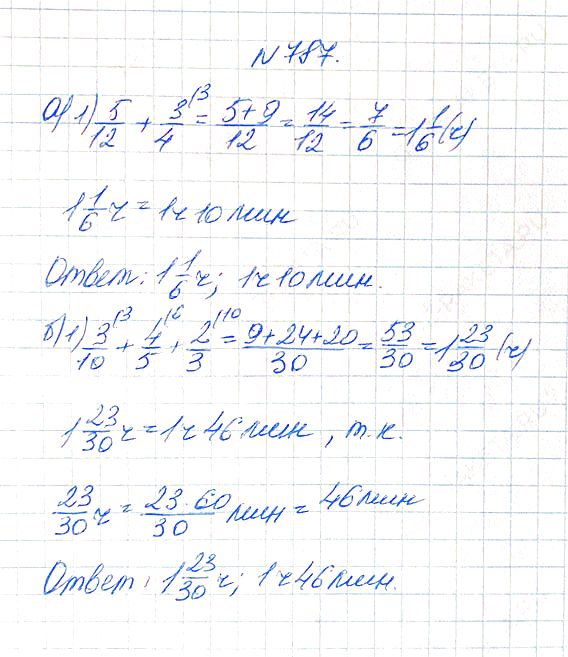 N 787.
а) 1) 5/12 + 3/4 \3 = 5+9/12 = 14/12 = 7/6 = 1 1/6 (ч)
1 1/6 ч = 1ч 10 мин
Ответ: 1 1/6 ч; 1ч 10 мин.
б) 1) 3/10 \3 + 4/5 \6 + 2/3 \10 = 9+24+20/30 = 53/30 = 1 23/30 (ч)
1 23/30 ч = 1ч 46 мин, т.к.
23/30 ч = 23·60/30 мин = 46 мин
Ответ: 1 23/30 ч; 1ч 46 мин.